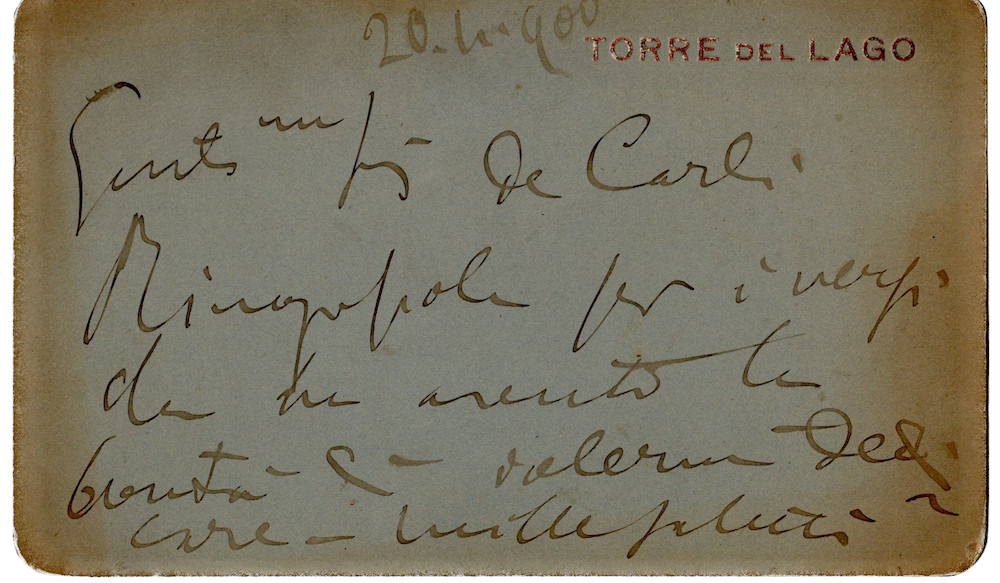 20.4.900
TORRE DEL LAGO
Gent mo Sig De Carli.
Ringraziola per i versi
che ha avuto la
bontà di volermi dedi
care – mille saluti